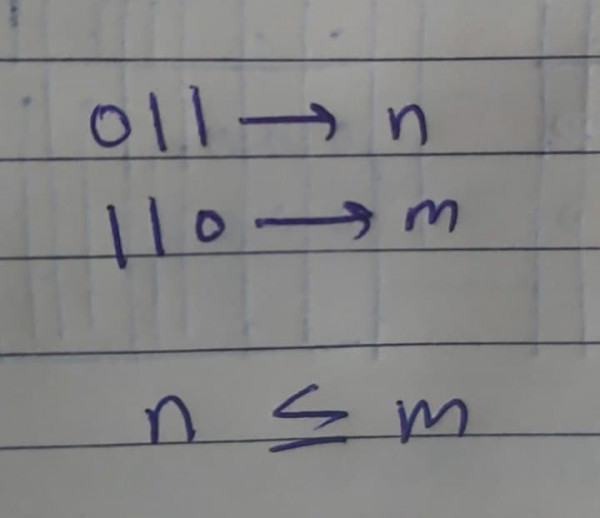 011 → n
110 → m
n ≤ m